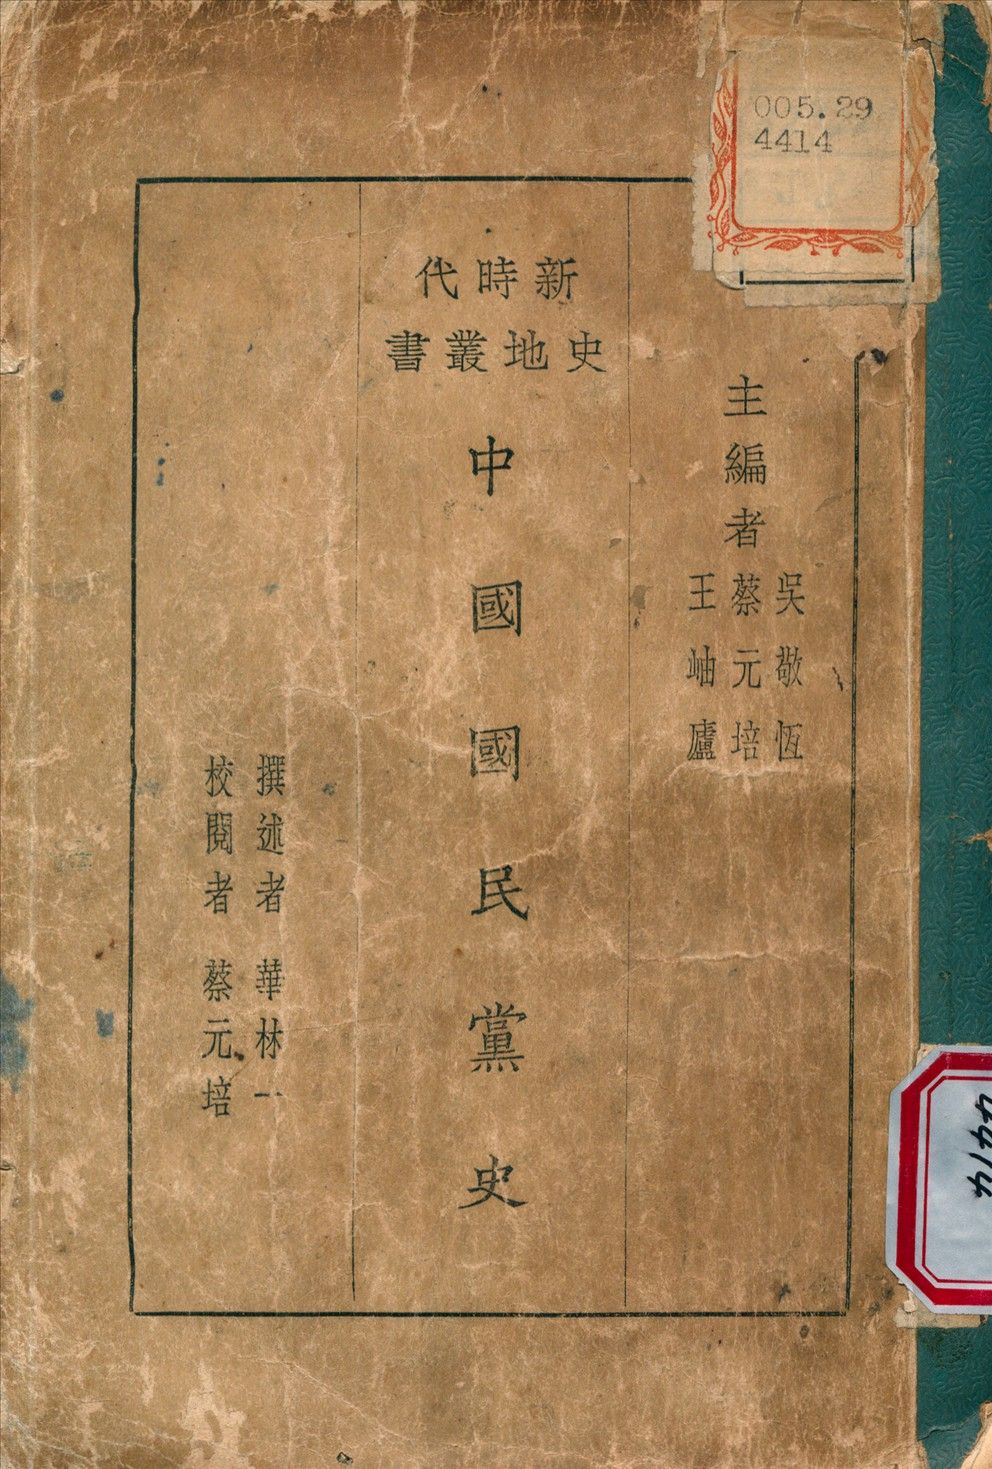 005.29
4414
主編者
吳敬恆
蔡元培
王岫廬
新時代
史地叢書
中國國民黨史
撰述者 華林一
校閱者 蔡元培
4414